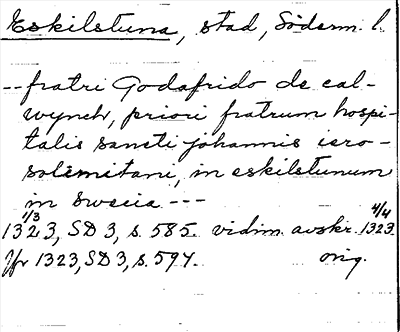 Eskilstuna, stad, Söderm. l.
-- fratri Godafrido de cal-
wynch, priori fratrum hospi-
talis sancti johannis iero-
solimitani, in eskilstunum
in swecia ---
1/3 4/4
1323, SD 3, s. 585. vidim. avskr. 1323.
Jfr 1323, SD 3, s. 594. orig.